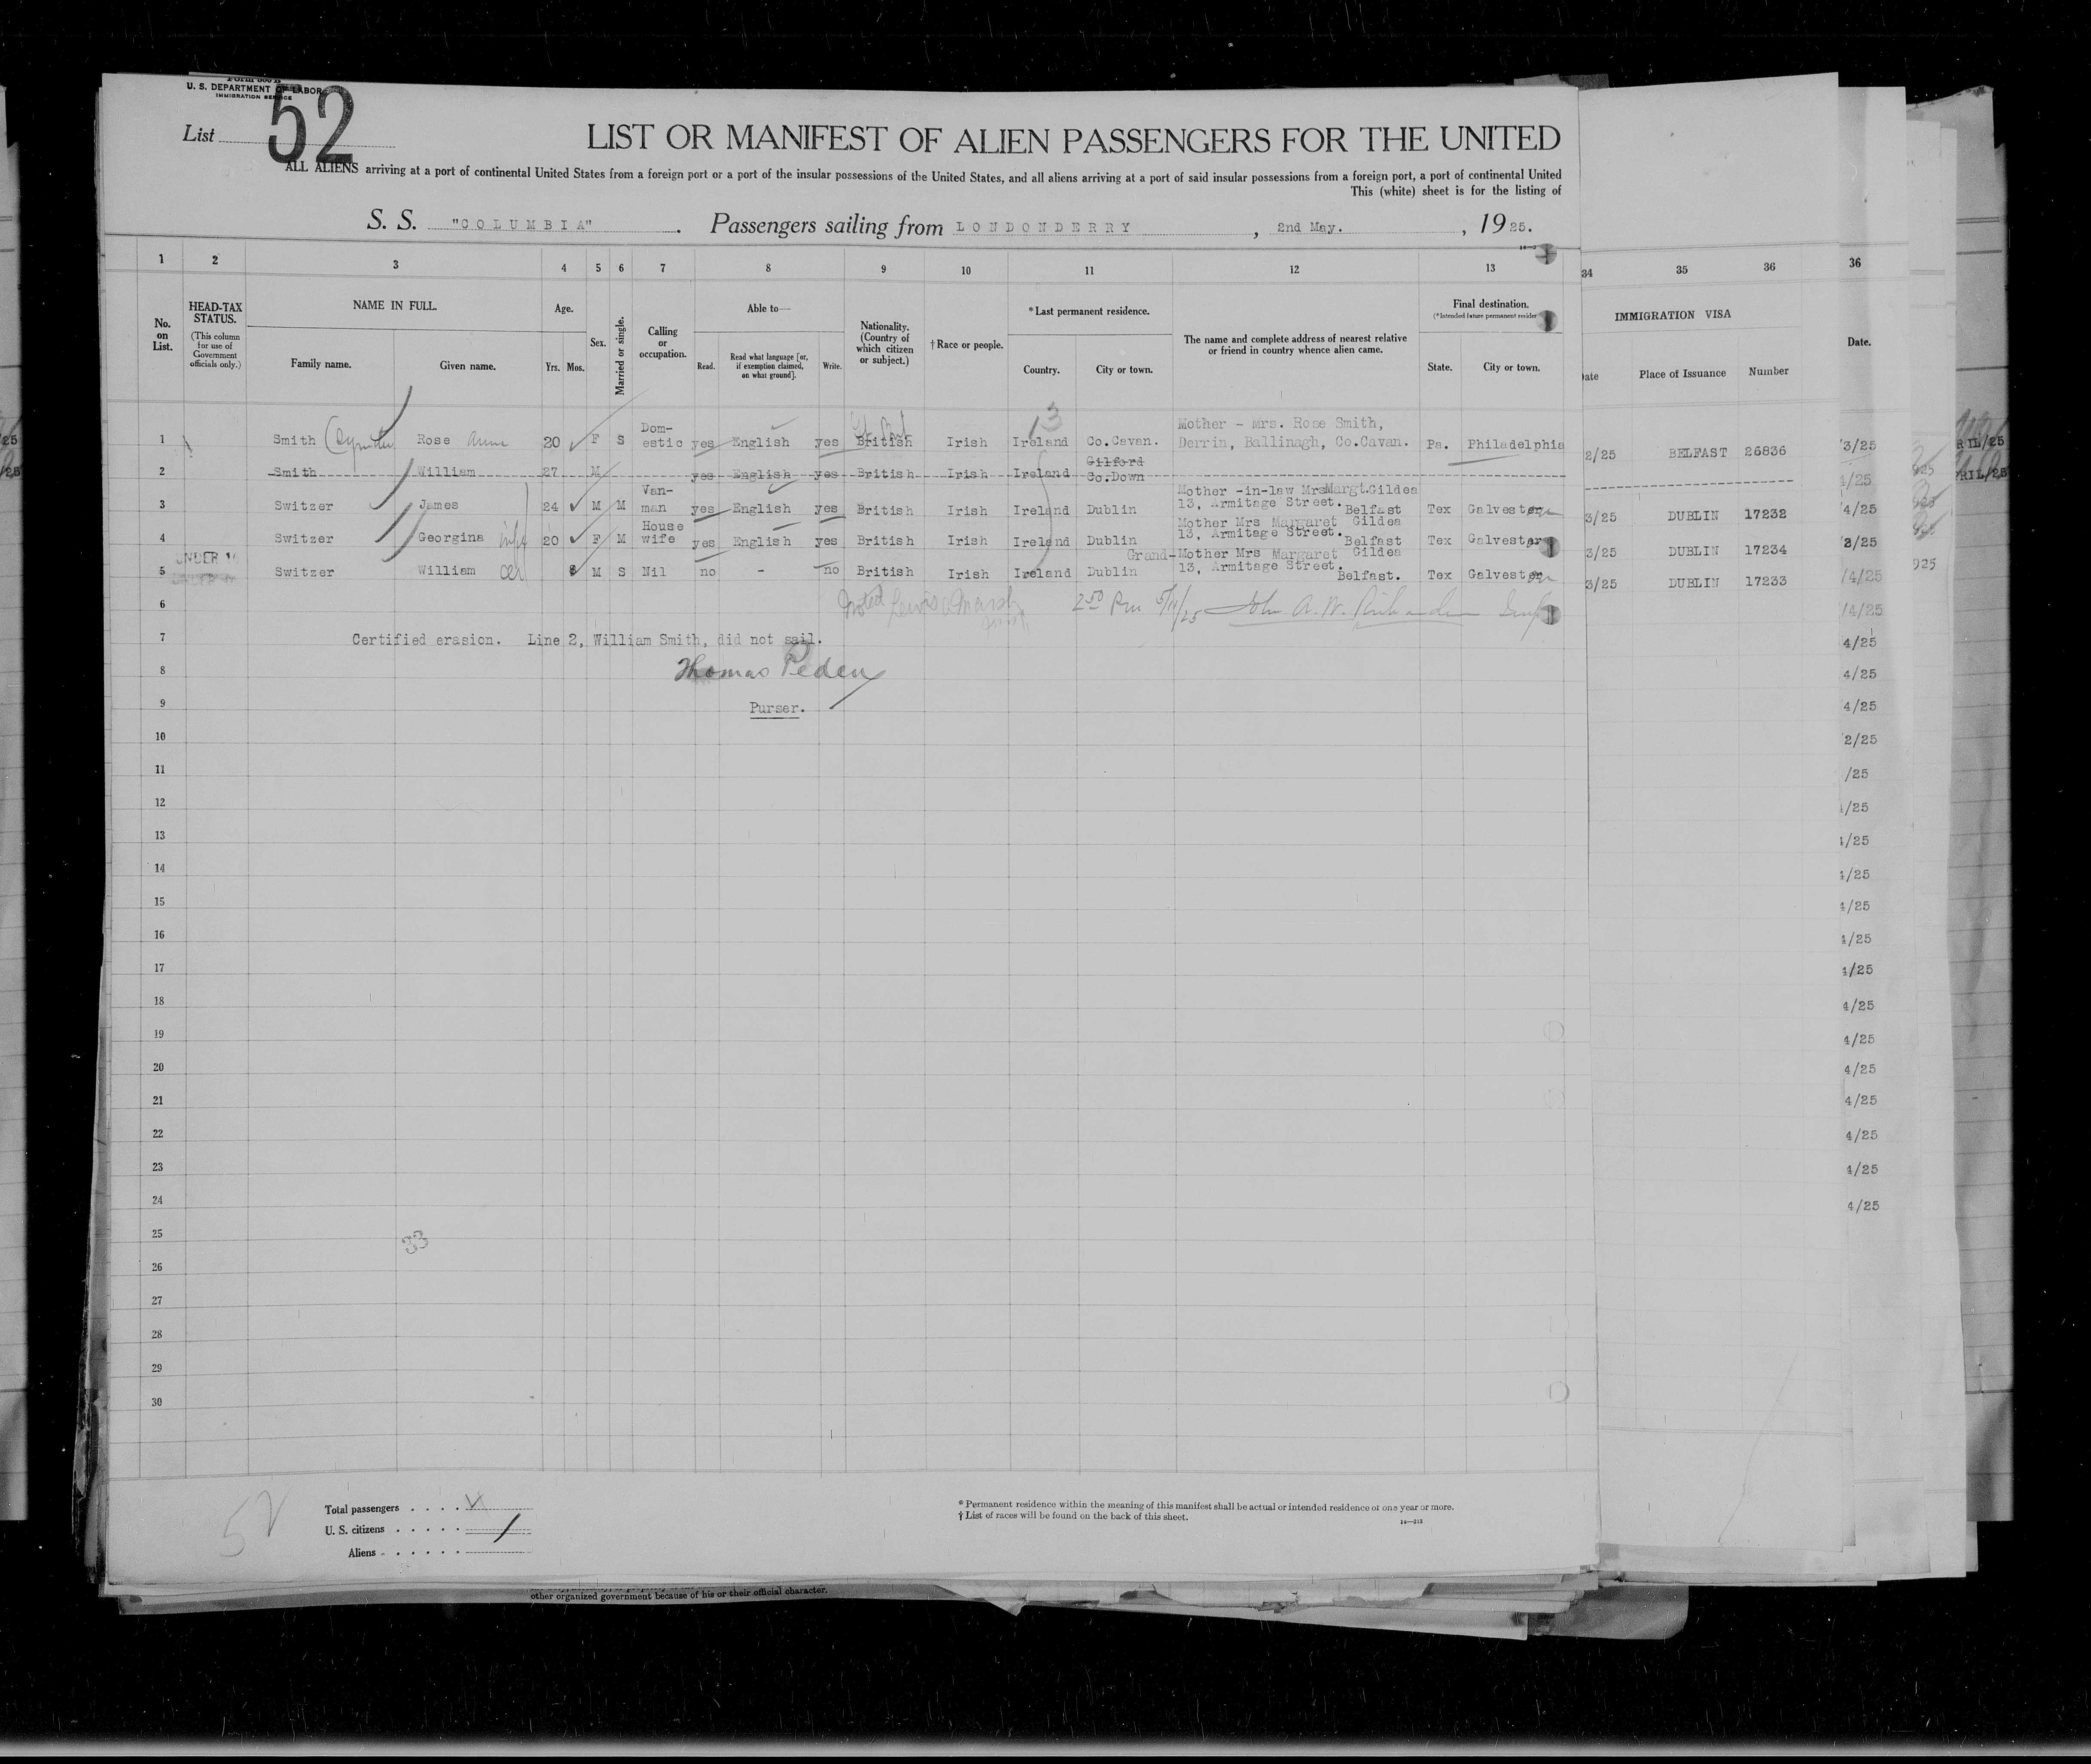 U. S. DEPARTMENT OF LABOR
IMMIGRATION SERVICE
List 52
LIST OR MANIFEST OF ALIEN PASSENGERS FOR THE UNITED
ALL ALIENS arriving at a port of continental United States from a foreign port or a port of the insular possessions of the United States, and all aliens arriving at a port of said insular possessions from a foreign port, a port of continental United
This (white) sheet is for the listing of
S. S. "COLUMBIA" . Passengers sailing from LONDONDERRY , 2nd May. , 1925.
1 2 3 4 5 6 7 8 9 10 11 12 13 34 35 36 36
No. on List.
HEAD-TAX STATUS.
(This column for use of Government officials only.)
NAME IN FULL.
Family name. Given name.
Age.
Yrs. Mos.
Sex.
Married or single.
Calling or occupation.
Able to—
Read. Read what language [or, if exemption claimed, on what ground]. Write.
Nationality. (Country of which citizen or subject.)
† Race or people.
* Last permanent residence.
Country. City or town.
The name and complete address of nearest relative or friend in country whence alien came.
Final destination.
State. City or town.
IMMIGRATION VISA
Place of Issuance Number
Date.
1 Smith Rose Anna 20 F S Dom-estic yes English yes British Irish Ireland Co.Cavan. Mother - Mrs. Rose Smith, Derrin, Ballinagh, Co.Cavan. Pa. Philadelphia 2/25 BELFAST 26836 3/25
2 Smith William 27 M yes English yes British Irish Ireland Gilford Co.Down
3 Switzer James 24 M M Van-man yes English yes British Irish Ireland Dublin Mother -in-law Mrs Margt.Gildea 13, Armitage Street. Belfast Tex Galveston 3/25 DUBLIN 17232 4/25
4 Switzer Georgina wife 20 F M House wife yes English yes British Irish Ireland Dublin Mother Mrs Margaret Gildea 13, Armitage Street. Belfast Tex Galveston 3/25 DUBLIN 17234
UNDER 16
5 Switzer William M S Nil no - no British Irish Ireland Dublin Grand-Mother Mrs Margaret Gildea 13, Armitage Street. Belfast. Tex Galveston 3/25 DUBLIN 17233 /4/25
6 /4/25
7 Certified erasion. Line 2, William Smith, did not sail. 4/25
8 Thomas Peden 4/25
9 Purser. 4/25
10 2/25
11 /25
12 /25
13 /25
14 /25
15 /25
16 /25
17 4/25
18 4/25
19 4/25
20 4/25
21 4/25
22 4/25
23 4/25
24 4/25
25 33
26
27
28
29
30
52
Total passengers
U. S. citizens
Aliens
* Permanent residence within the meaning of this manifest shall be actual or intended residence of one year or more.
† List of races will be found on the back of this sheet.
14—213
other organized government because of his or their official character.